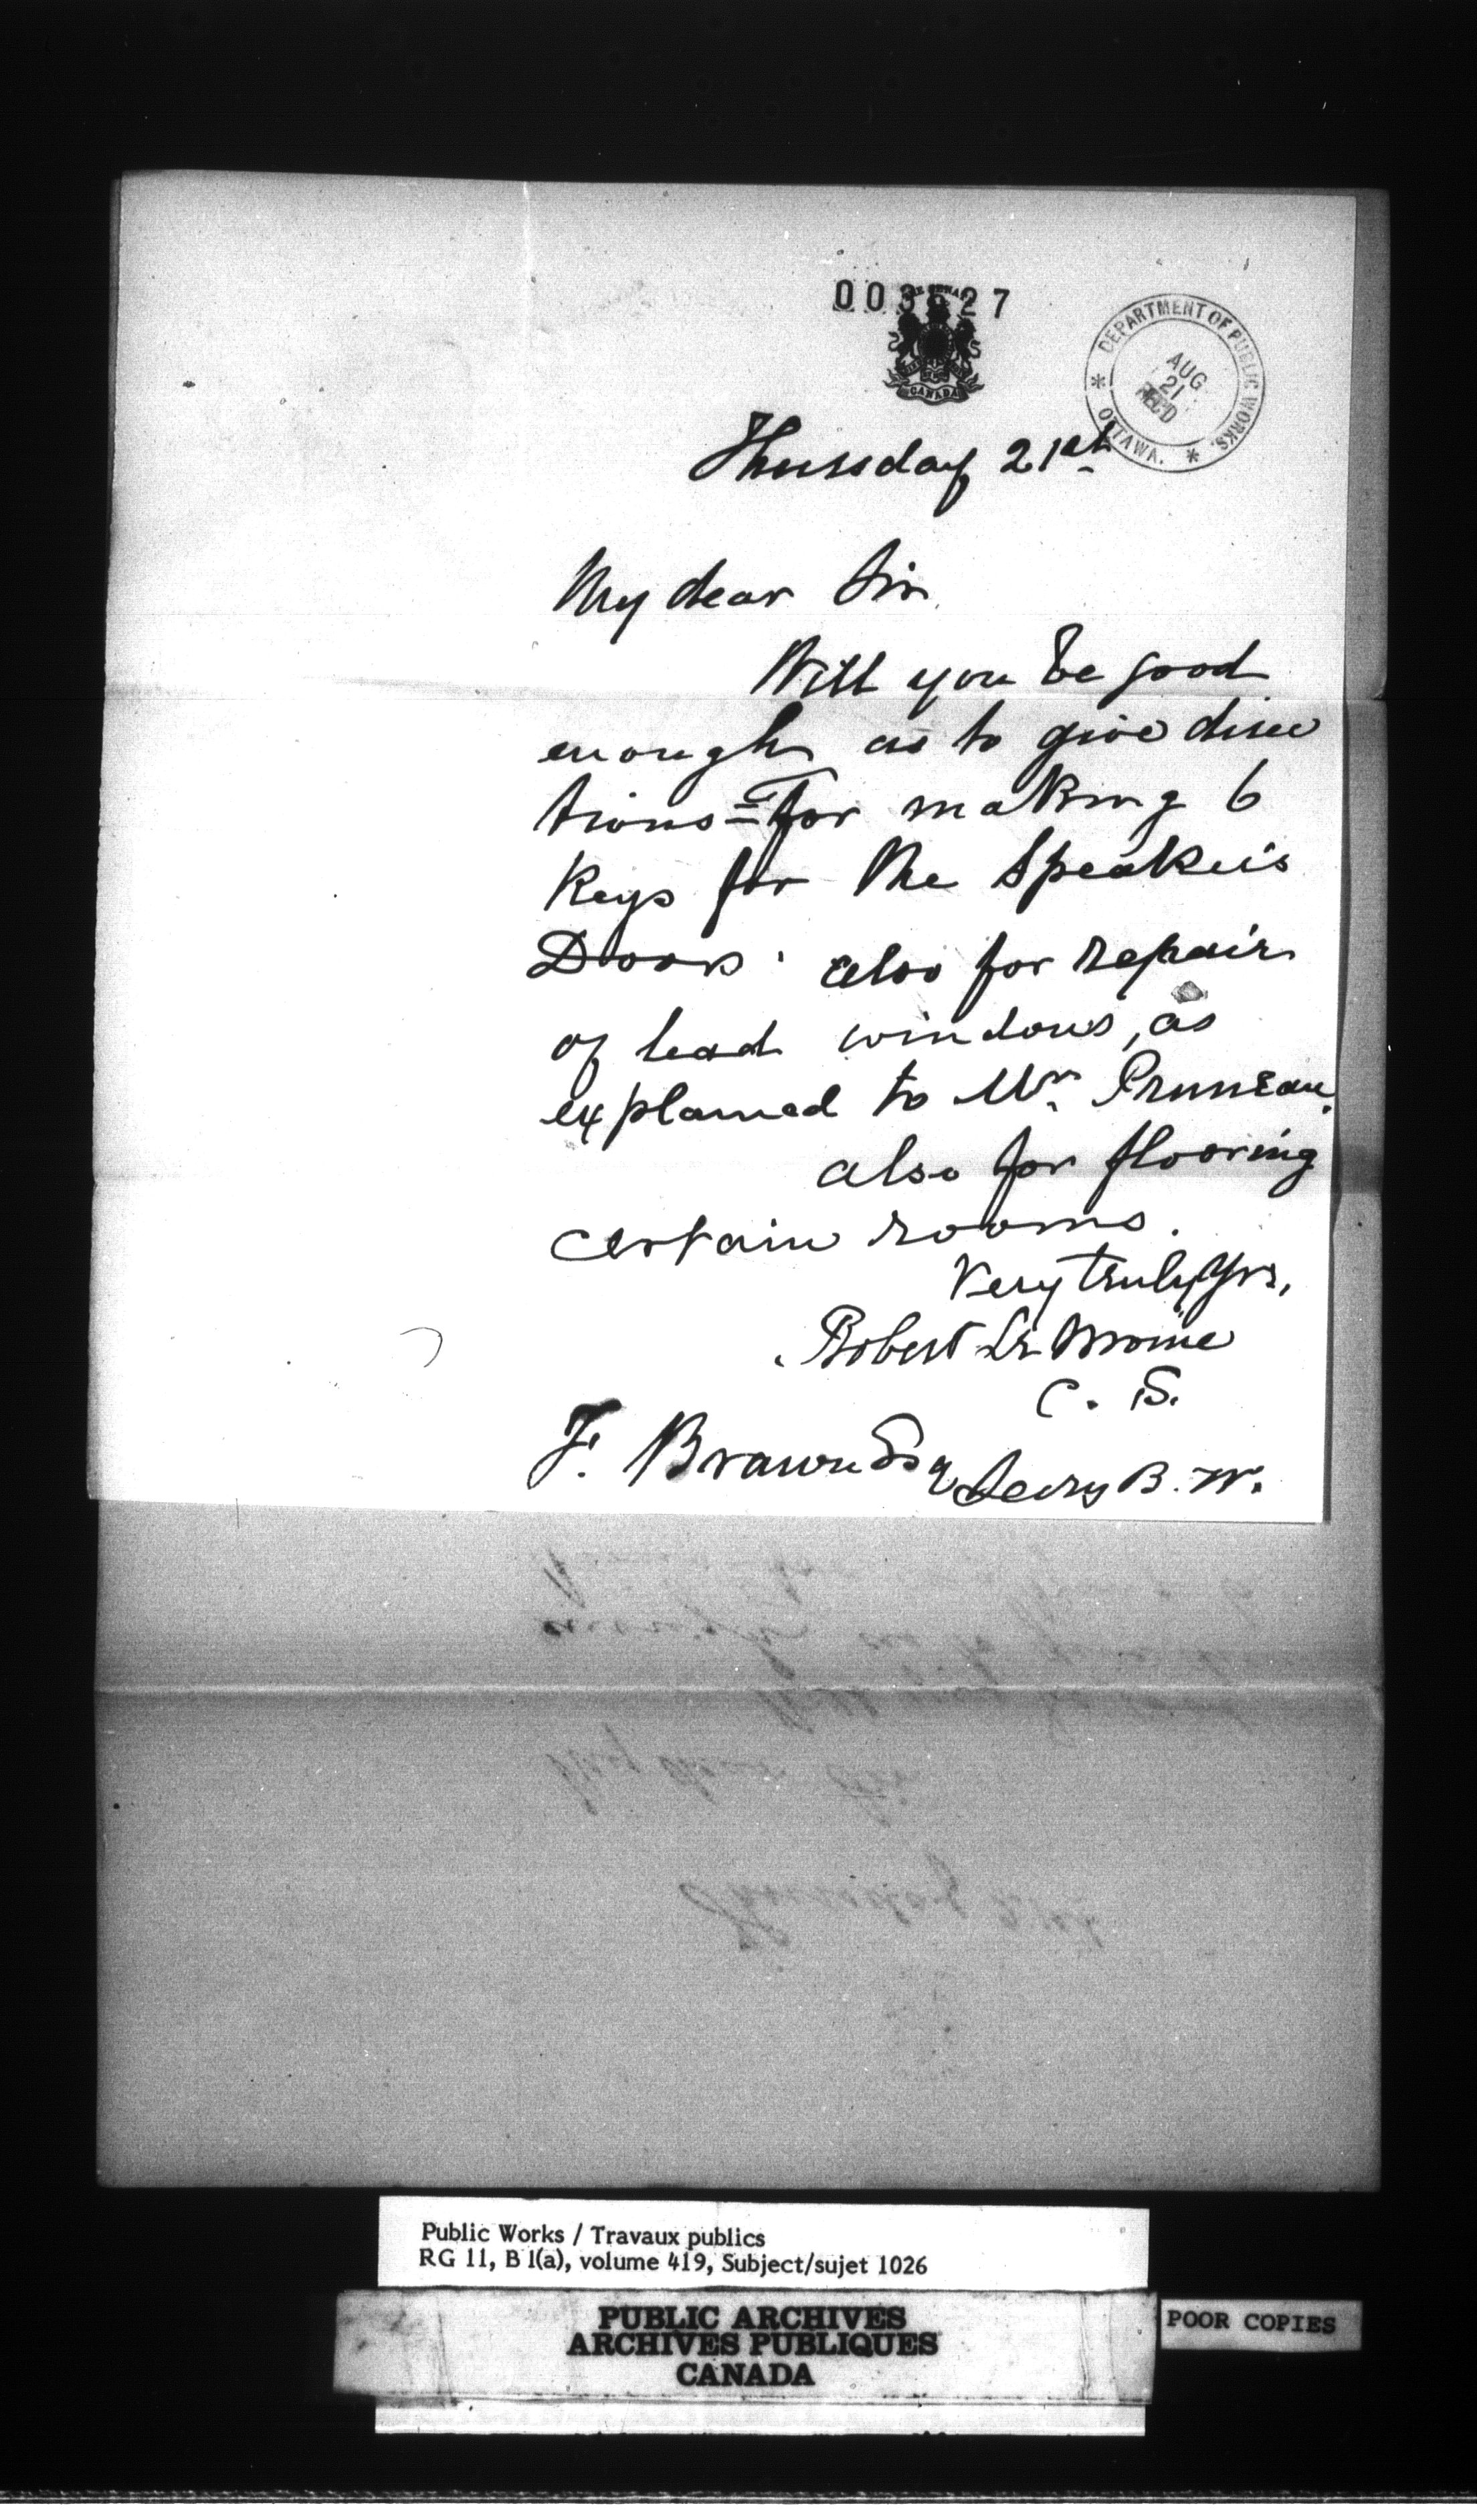 THE SENATE
CANADA
DEPARTMENT OF PUBLIC WORKS.
AUG
21
REC'D
* OTTAWA. *
Thursday 21st
My dear Sir
Will you be good
enough as to give direc
tions = for making 6
Keys for the Speaker's
Door. also for repair
of lead windows, as
explained to Mr. Pruneau.
also for flooring
certain rooms.
Very truly Yrs,
Robert Le Moine
C. S.
F. Braun Esq Secry B. W.
Public Works / Travaux publics
RG 11, B 1(a), volume 419, Subject/sujet 1026
PUBLIC ARCHIVES
ARCHIVES PUBLIQUES
CANADA
POOR COPIES